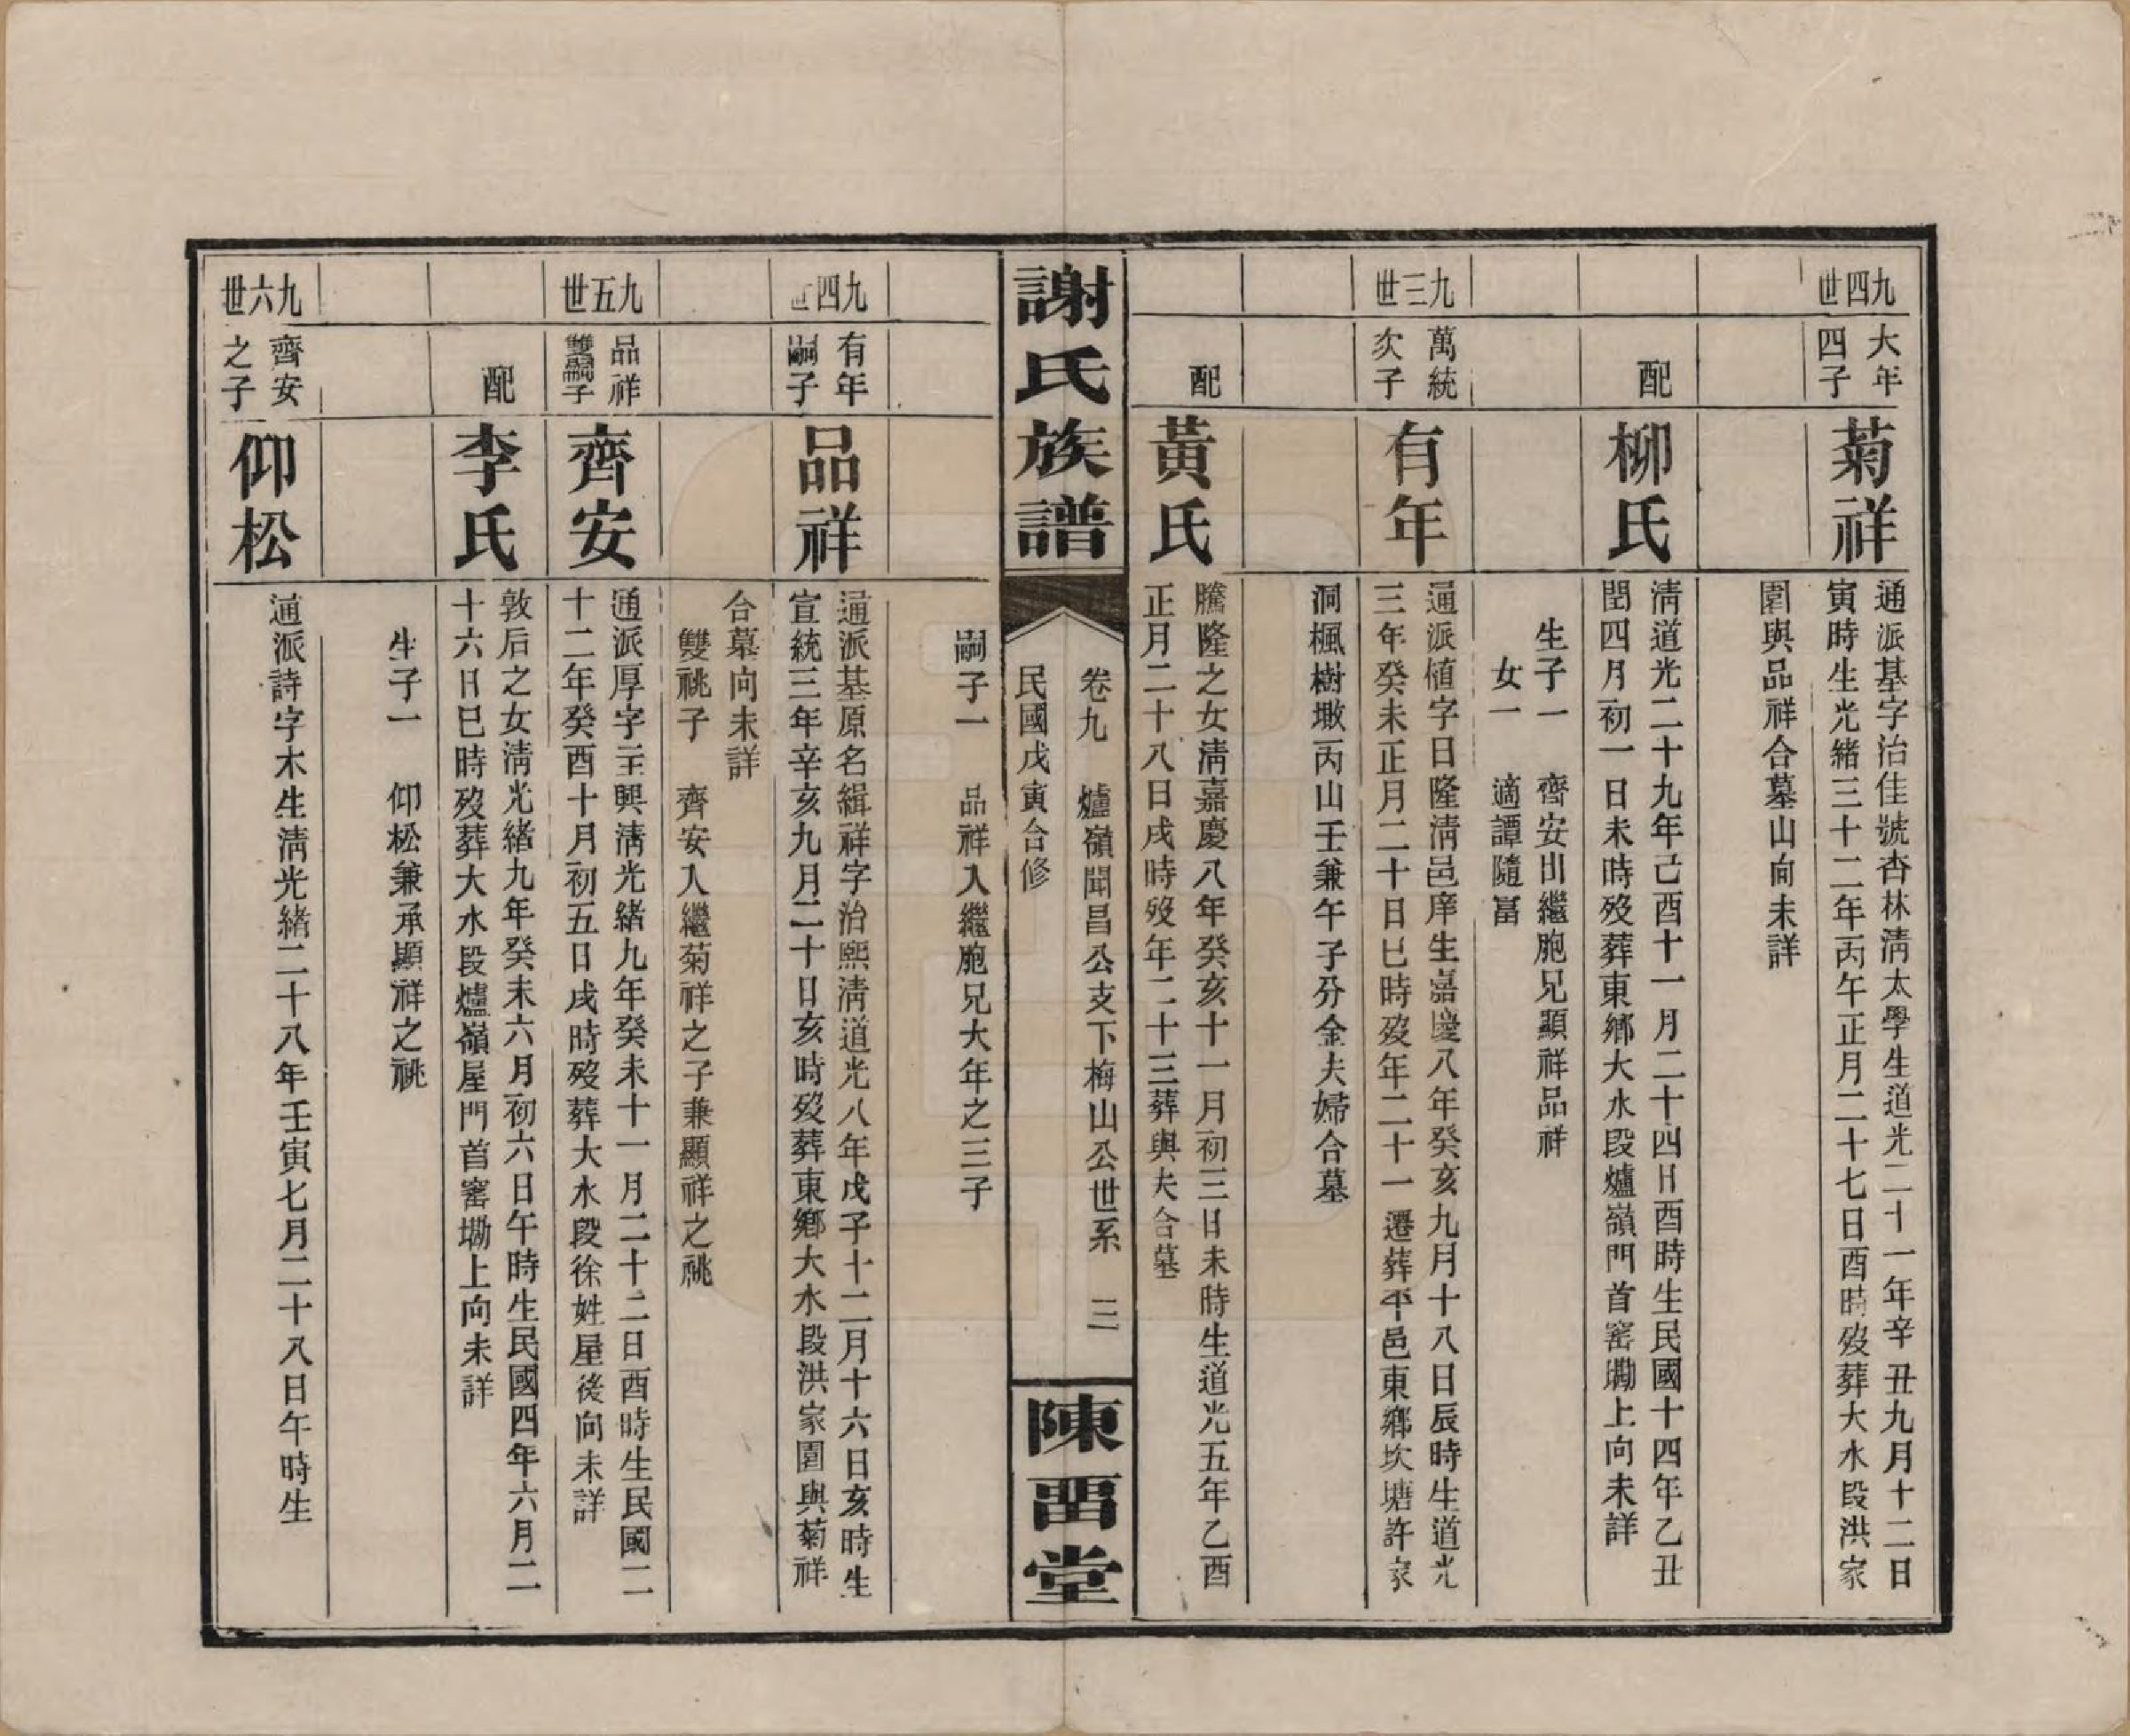 九四世
大年
四子
菊祥
通派基字治佳號杏林淸太學生道光二十一年辛丑九月十二日
寅時生光緖三十二年丙午正月二十七日酉時歿葬大水段洪家
園與品祥合墓山向未詳
配
柳氏
淸道光二十九年己酉十一月二十四日酉時生民國十四年乙丑
閏四月初一日未時歿葬東鄕大水段爐嶺門首窰塝上向未詳
生子一 齊安出繼胞兄顯祥品祥
女一 適譚隨富
九三世
萬統
次子
有年
通派値字日隆淸邑庠生嘉慶八年癸亥九月十八日辰時生道光
三年癸未正月二十日巳時歿年二十一遷葬平邑東鄕坎塘許家
洞楓樹墩丙山壬兼午子分金夫婦合墓
配
黃氏
騰隆之女淸嘉慶八年癸亥十一月初三日未時生道光五年乙酉
正月二十八日戌時歿年二十三葬與夫合墓
謝氏族譜
卷九 爐嶺聞昌公支下梅山公世系 三
民國戊寅合修
陳畱堂
嗣子一 品祥入繼胞兄大年之三子
九四世
有年
嗣子
品祥
通派基原名緝祥字治熙淸道光八年戊子十二月十六日亥時生
宣統三年辛亥九月二十日亥時歿葬東鄕大水段洪家園與菊祥
合墓向未詳
雙祧子 齊安入繼菊祥之子兼顯祥之祧
九五世
品祥
雙嗣子
齊安
通派厚字主興淸光緖九年癸未十一月二十二日酉時生民國二
十二年癸酉十月初五日戌時歿葬大水段徐姓屋後向未詳
配
李氏
敦后之女淸光緖九年癸未六月初六日午時生民國四年六月二
十六日巳時歿葬大水段爐嶺屋門首窰塝上向未詳
生子一 仰松兼承顯祥之祧
九六世
齊安
之子
仰松
通派詩字木生淸光緖二十八年壬寅七月二十八日午時生